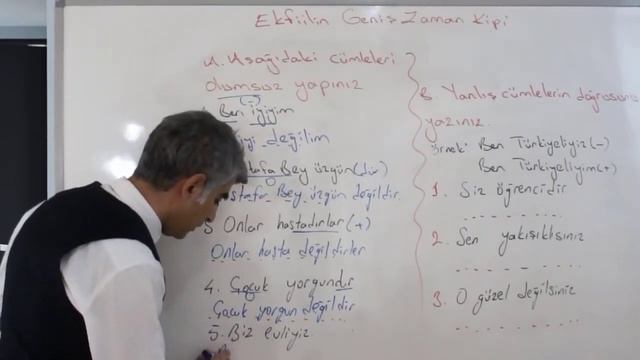 Ekfiilin Geniş Zaman Kipi
A. Aşağıdaki cümleleri
olumsuz yapınız
(-)
Ben iyiyim
iyi değilim
Bey üzgün(dür)
Bey üzgün değildir.
3 Onlar hastadırlar (+)
Onlar hasta değildirler
4. Çocuk yorgundur
Çocuk yorgun değildir
5. Biz evliyiz
B. Yanlış cümlelerin doğrusunu
yazınız.
Örnek: Ben Türkiyeliyiz (-)
Ben Türkiyeliyim (+)
1. Siz öğrencidir
2. Sen yakışıklısınız
3. O güzel değilsiniz